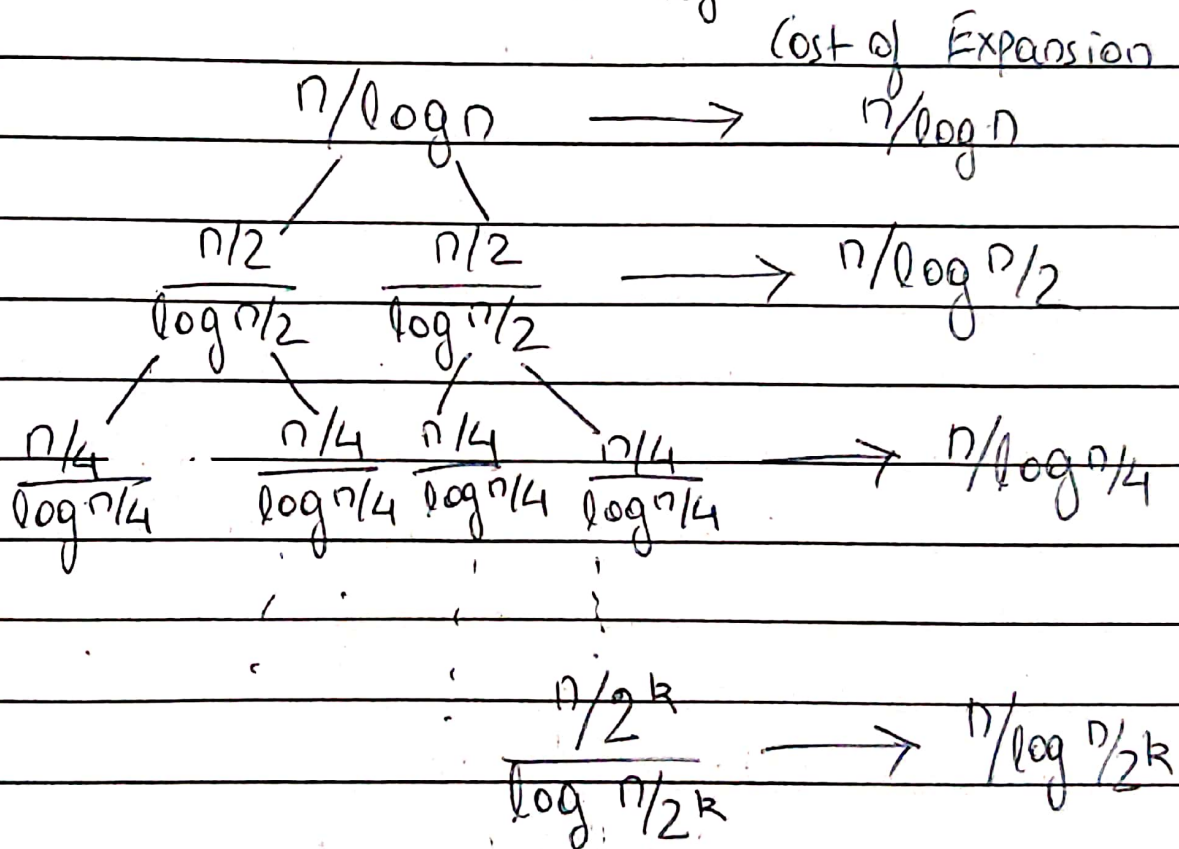 Cost of Expansion
n/logn → n/logn
n/2 n/2
log n/2 log n/2 → n/log n/2
n/4 n/4 n/4 n/4
log n/4 log n/4 log n/4 log n/4 → n/log n/4
n/2^k
log n/2^k → n/log n/2^k